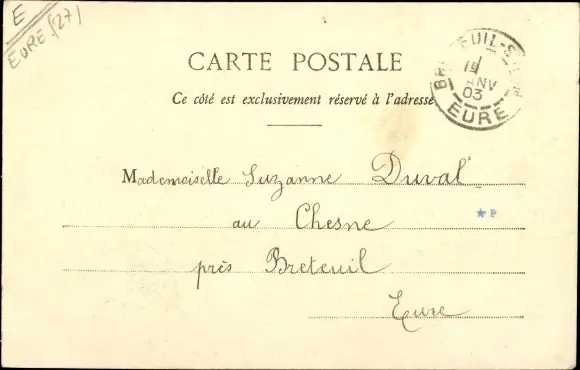 E
EURE (27)
CARTE POSTALE
Ce côté est exclusivement réservé à l'adresse
BR EUIL-S
ANV
03
EURE
Mademoiselle Suzanne Duval
au Chesne
près Breteuil
Eure